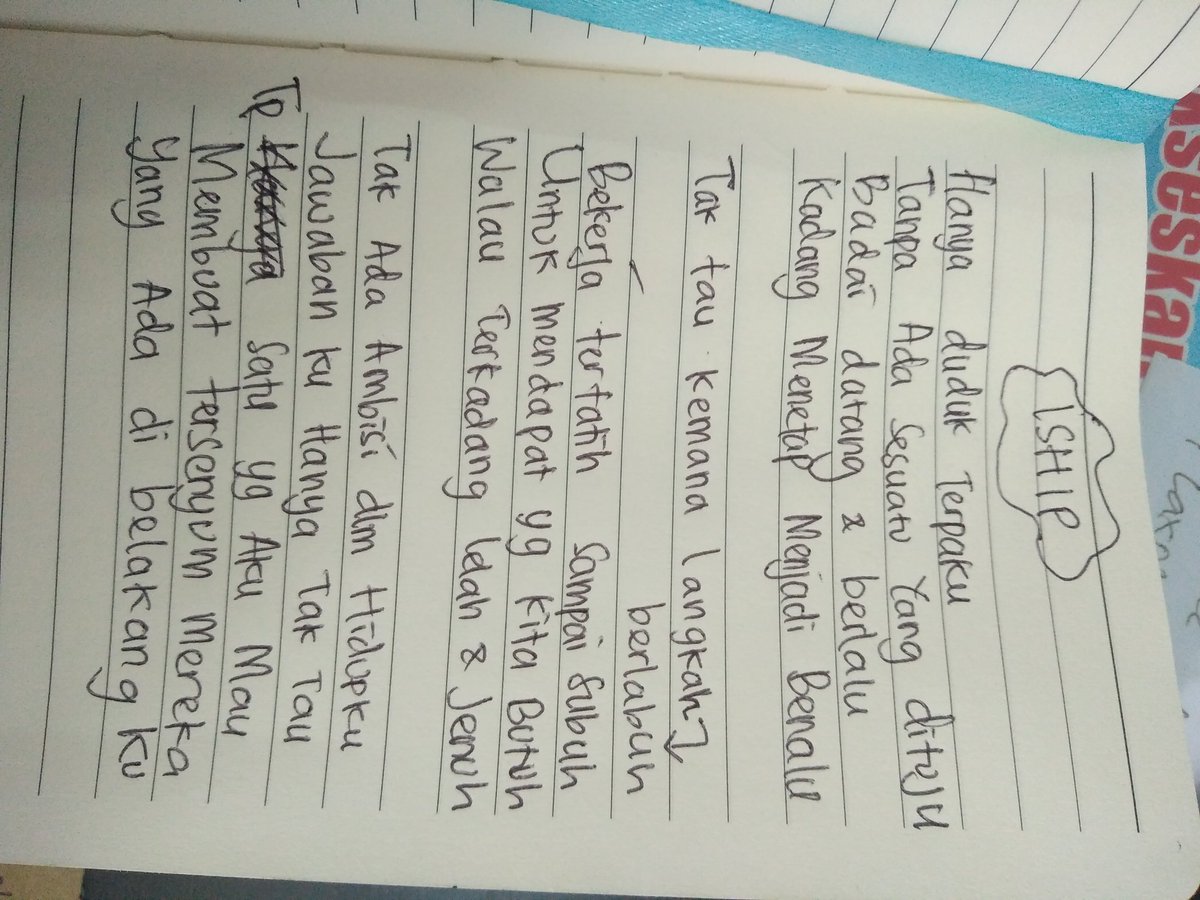 LSHIP
Hanya duduk Terpaku
Tanpa Ada Sesuatu Yang dituju
Badai datang & berlalu
Kadang Menetap Menjadi Benalu
Tak tau kemana langkah
berlabuh
Bekerja tertatih Sampai Subuh
Untuk mendapat yg kita Butuh
Walau Terkadang lelah & Jenuh
Tak Ada Ambisi dlm Hidupku
Jawaban ku Hanya Tak Tau
Tp Satu yg Aku Mau
Membuat tersenyum mereka
Yang Ada di belakang ku